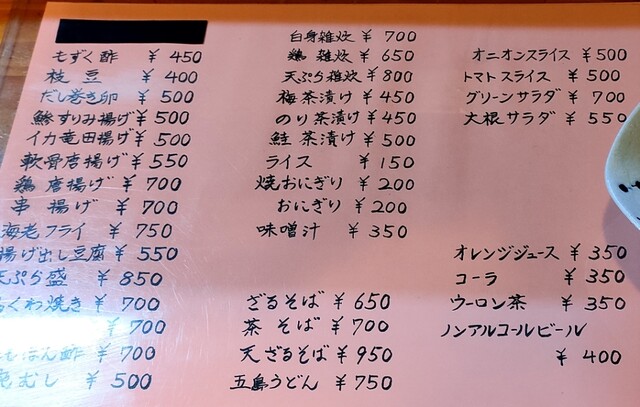 もずく酢 ¥450
枝豆 ¥400
だし巻き卵 ¥500
鯵すりみ揚げ ¥500
イカ竜田揚げ ¥500
軟骨唐揚げ ¥550
鶏唐揚げ ¥700
串揚げ ¥700
海老フライ ¥750
揚げ出し豆腐 ¥550
天ぷら盛 ¥850
くわ焼き ¥700
¥700
ぽん酢 ¥700
むし ¥500
白身雑炊 ¥700
鶏雑炊 ¥650
天ぷら雑炊 ¥800
梅茶漬け ¥450
のり茶漬け ¥450
鮭茶漬け ¥500
ライス ¥150
焼おにぎり ¥200
おにぎり ¥200
味噌汁 ¥350
ざるそば ¥650
茶そば ¥700
天ざるそば ¥950
五島うどん ¥750
オニオンスライス ¥500
トマトスライス ¥500
グリーンサラダ ¥700
大根サラダ ¥550
オレンジジュース ¥350
コーラ ¥350
ウーロン茶 ¥350
ノンアルコールビール
¥400